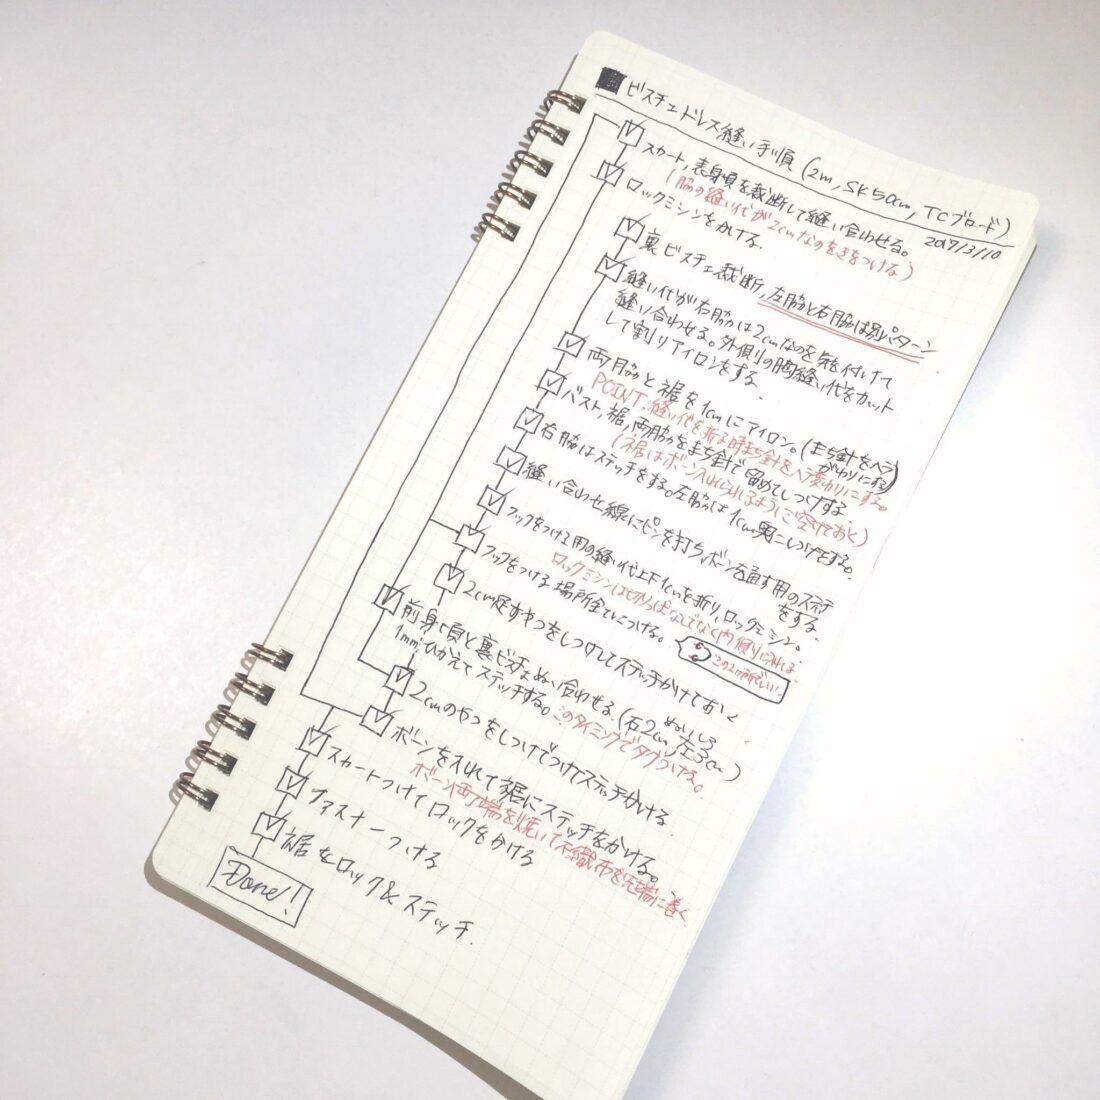 ■ビスチェドレス縫い手順(2m, SK50cm, TCブロード)
2017/3/10
スカート, 表身頃を裁断して縫い合わせる。
(脇の縫い代が2cmなのをきをつけな)
ロックミシンをかける。
裏ビスチェ裁断, 左脇と右脇は別パターン
縫い代が右脇は2cmなのを気を付けて
縫い合わせる。外側の胸縫い代をカット
して割りアイロンをする。
両脇と裾を1cmにアイロン。(まち針をヘラがわりにする)
POINT.縫い代を折る時まち針をヘラ変わりにする。
バスト, 裾, 両脇をまち針で留めてしつけする
(裾はボーン入れられるように空けておく)
右脇はステッチをする。左脇は1cm奥にしつけをする。
縫い合わせ線にピンを打ち, ボーンを通す用のステッチをする。
フックをつける用の縫い代上下1cmを折り, ロックミシン。
ロックミシンは切りっぱなしでなく内側に入れる。
フックをつける場所全てにつける。
この2ヶ所でいい。
2cm足すやつをしつけしてステッチかけておく
前身頃と裏ビスチェぬい合わせる (右2cm, 左3cm ぬいしろ)
1mmひかえてステッチする。このタイミングでタグつける。
2cmのやつをしつけでつけてステッチかける。
ボーンを入れて裾にステッチをかける。
ボーン両端を焼いて不織布を先端に巻く
スカートつけてロックをかける
ファスナーつける
裾をロック&ステッチ.
Done!